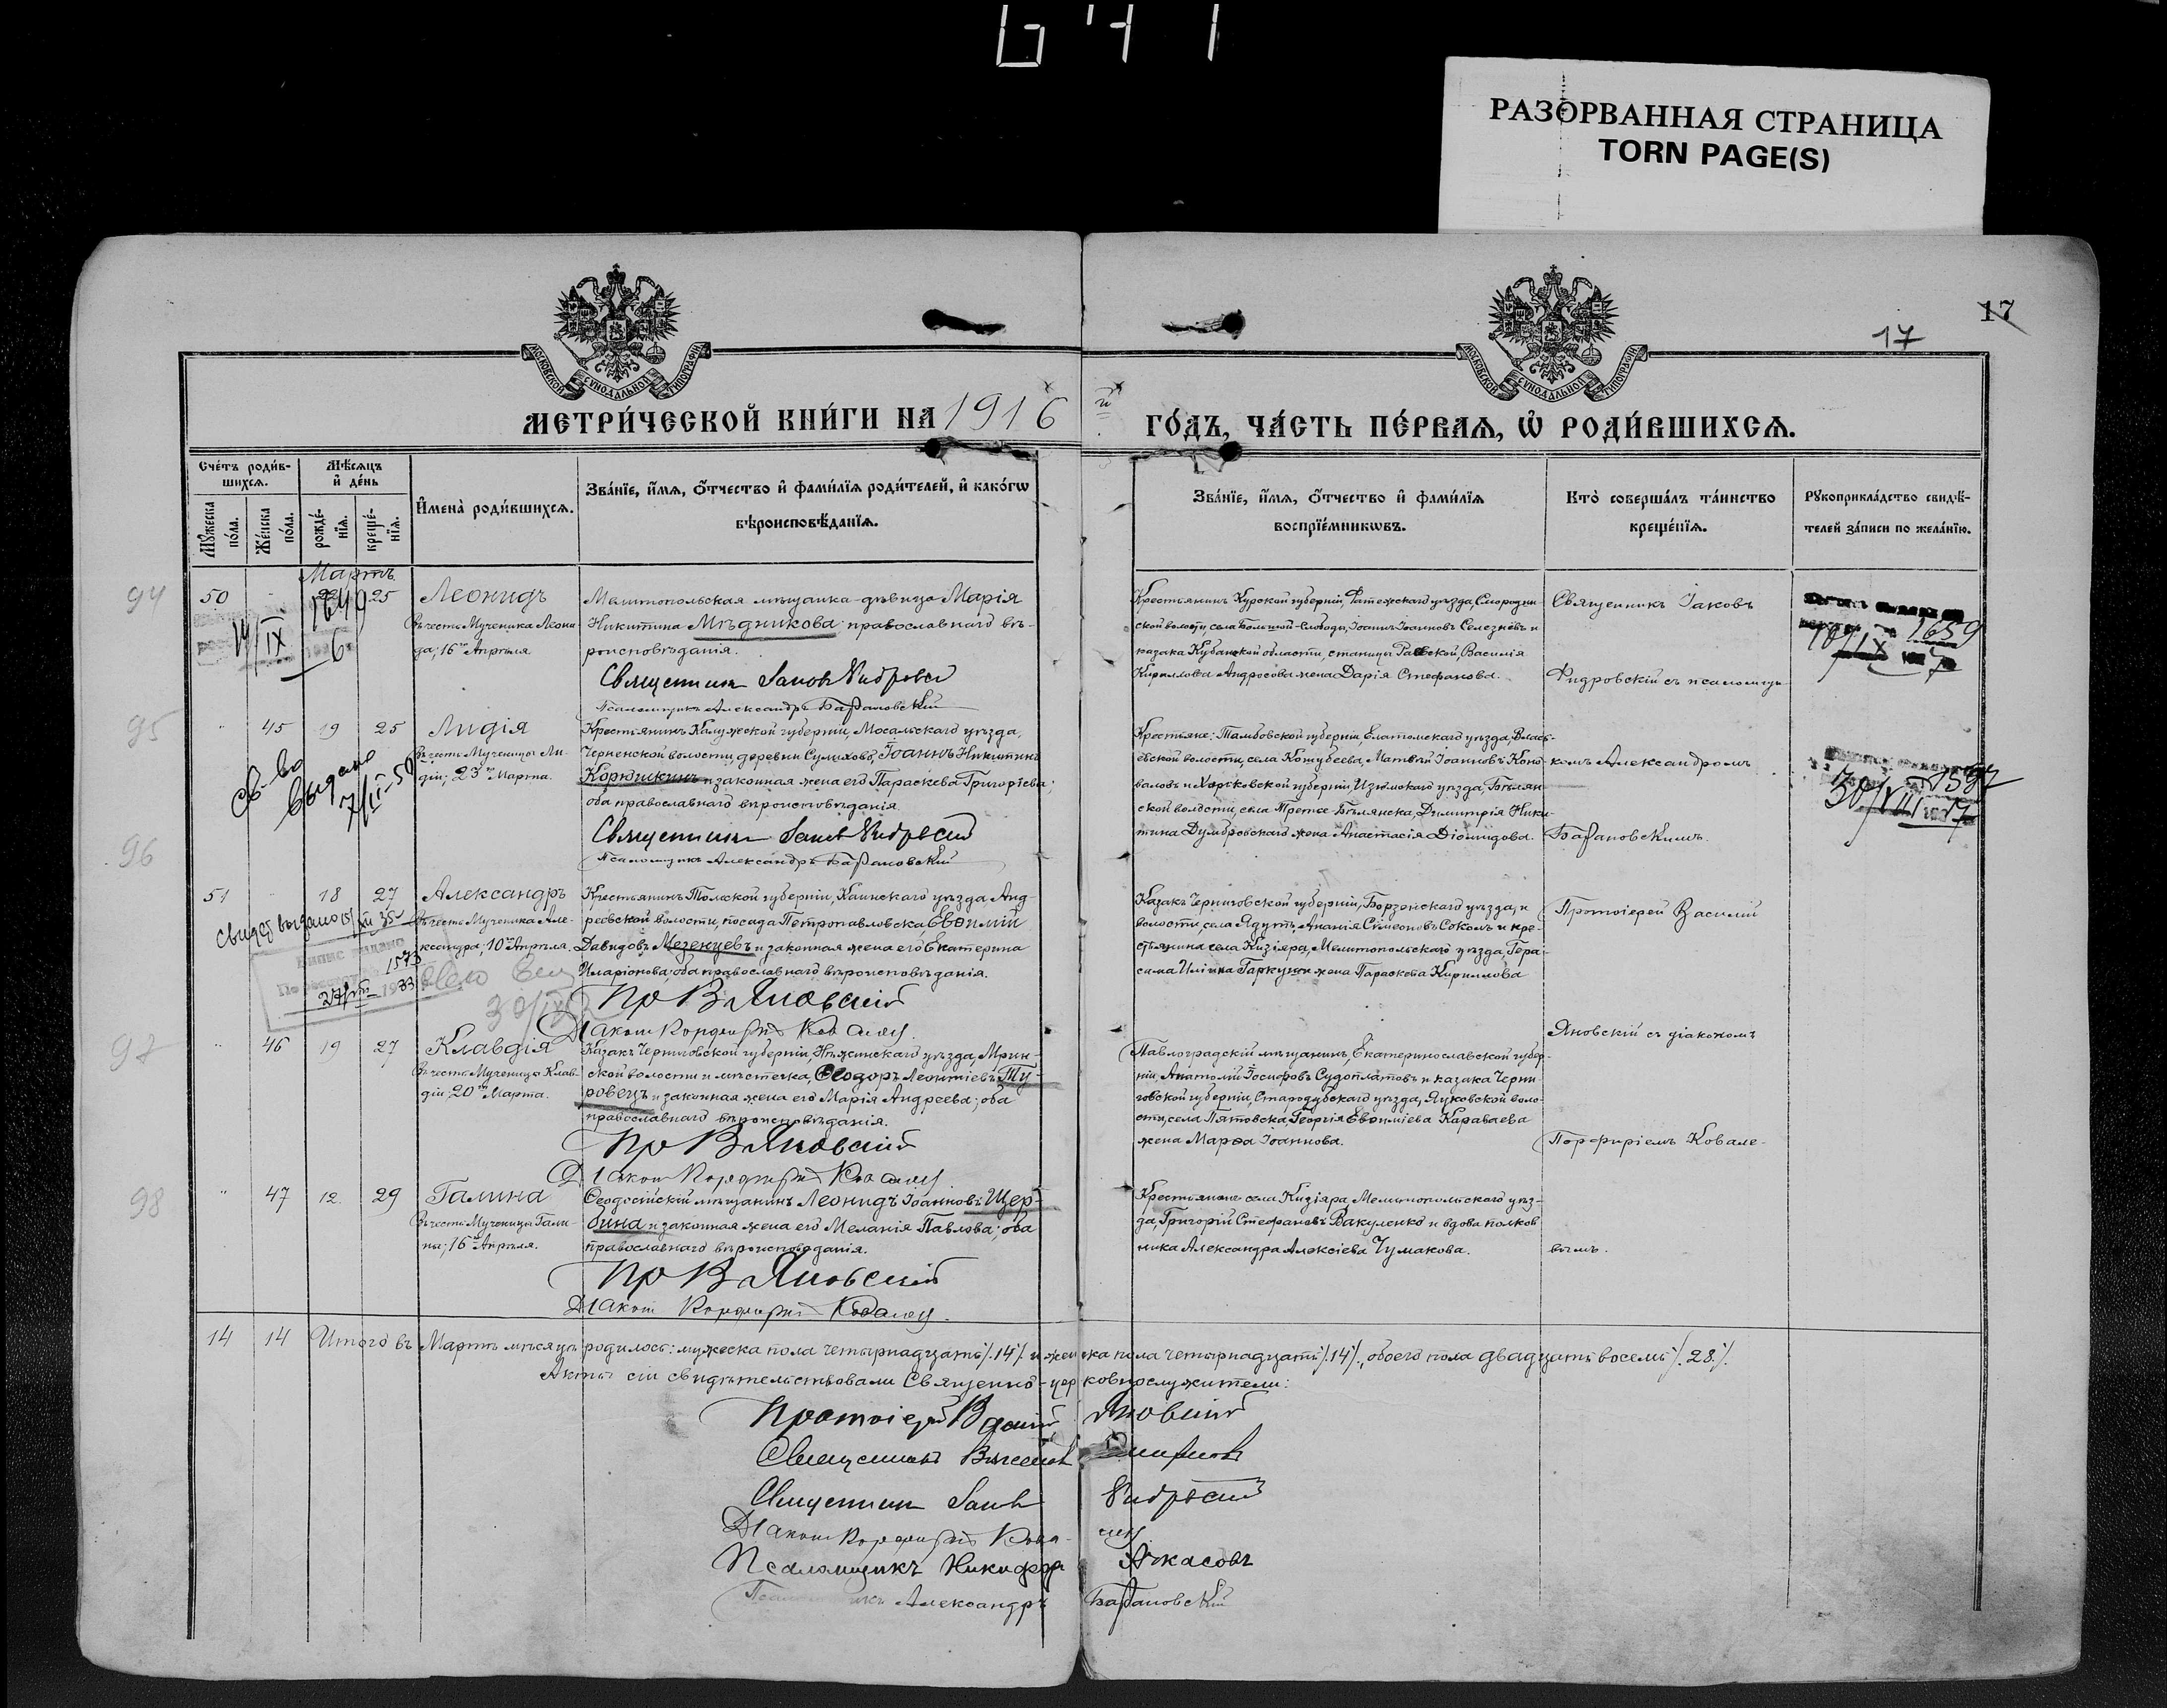 РАЗОРВАННАЯ СТРАНИЦА
TORN PAGE(S)
17
17
МОСКОВСКОЙ СУНОДАЛЬНОЙ ТИПОГРАФІИ
МОСКОВСКОЙ СУНОДАЛЬНОЙ ТИПОГРАФІИ
МЕТРИ́ЧЕСКОЙ КНИ́ГИ НА 1916 й ГО́ДЪ, ЧА́СТЬ ПЕ́РВАЯ, Ѡ РОДИ́ВШИХСЯ.
Сче́тъ роди́в-
шихся.
Мѣ́сяцъ
и де́нь
Мꙋ́жеска по́ла.
Же́нска по́ла.
рожде́-
нїя.
креще́-
нїя.
Имена̀ роди́вшихся.
Зва́нїе, и́мя, о́тчество и фами́лїя роди́телей, и како́гѡ
вѣроисповѣ́данїя.
Зва́нїе, и́мя, о́тчество и фами́лїя
воспрїе́мникѡвъ.
Кто̀ соверша́лъ та́инство
креще́нїя.
Рꙋкоприкла́дство свидѣ́-
телей за́писи по жела́нїю.
Мартъ
94
50 25 Леонидъ
въ честь Мученика Леони-
да; 16го Апрѣля
14/IX 1649
6
Мелитопольская мѣщанка-дѣвица Марія
Никитина Мѣдникова православнаго вѣ-
роисповѣданія.
Священникъ Іаковъ Фидровскій
Псаломщикъ Александръ Барановскій
Крестьянинъ Курской губерніи, Фатежскаго уѣзда, Смородин-
ской волости, села Большой-Слободы, Іоаннъ Іоанновъ Селезневъ и
казака Кубанской области, станицы Раевской, Василія
Кириллова Андросова жена Дарія Стефанова.
Священникъ Іаковъ
Фидровскій съ псаломщи-
1659
95
45 19 25 Лидія
въ честь Мученицы Ли-
діи; 23го Марта.
Св-во
выдано
7/II-50
Крестьянинъ Калужской губерніи, Мосальскаго уѣзда,
Черненской волости, деревни Сулихово, Іоаннъ Никитинъ
Корючкинъ и законная жена его Параскева Григоріева;
оба православнаго вѣроисповѣданія.
Священникъ Іаковъ Фидровскій
Псаломщикъ Александръ Барановскій
Крестьяне: Тамбовской губерніи, Елатомскаго уѣзда, Власъ-
евской волости, села Кошубеева, Матвѣй Іоанновъ Коно-
валовъ и Харьковской губерніи, Изюмскаго уѣзда, Бѣлян-
ской волости, села Третье-Бѣлянска, Димитрія Ники-
тина Думбровскаго жена Анастасія Діомидова.
комъ Александромъ
Барановскимъ.
30/VIII 1592
17
96
51 18 27 Александръ
въ честь Мученика Але-
ксандра; 10го Апрѣля.
Свидет выдано
1573
1933
Крестьянинъ Томской губерніи, Каинскаго уѣзда, Анд-
реевской волости, посада Петропавловска, Евѳимій
Давидовъ Мезенцевъ и законная жена его Екатерина
Иларіонова; оба православнаго вѣроисповѣданія.
Пр В Яновскій
Діаконъ Порфирій Ковалевъ.
Казакъ Черниговской губерніи, Борзенскаго уѣзда, и
волости, села Ядутъ, Ананія Симеоновъ Соколъ и кре-
стьянина села Кизіяра, Мелитопольскаго уѣзда, Гера-
сима Иліина Гаркуши жена Параскева Кириллова
Протоіерей Василій
97
46 19 27 Клавдія
въ честь Мученицы Клав-
діи; 20го Марта.
Казакъ Черниговской губерніи, Нѣжинскаго уѣзда, Мрин-
ской волости и мѣстечка, Ѳеодоръ Леонтіевъ Ту-
ровецъ и законная жена его Марія Андреева; оба
православнаго вѣроисповѣданія.
Пр В Яновскій
Діаконъ Порфирій Ковалевъ.
Яновскій съ діакономъ
Павлоградскій мѣщанинъ, Екатеринославской губер-
ніи, Анатолій Іосифовъ Судоплатовъ и казака Черни-
говской губерніи, Стародубскаго уѣзда, Яцковской воло-
сти, села Пятовска, Георгія Евѳиміева Караваева
жена Марѳа Іоаннова.
Порфиріемъ Ковале-
98
47 12 29 Галина
въ честь Мученицы Гали-
ны; 16го Апрѣля.
Ѳеодосійскій мѣщанинъ Леонидъ Іоанновъ Щер-
бина и законная жена его Меланія Павлова; оба
православнаго вѣроисповѣданія.
Пр В Яновскій
Діаконъ Порфирій Ковалевъ.
Крестьянинъ села Кизіяра, Мелитопольскаго уѣз-
да, Григорій Стефановъ Вакуленко и вдова полков-
ника Александра Алексіева Чумакова.
вымъ.
14 14 Итого въ Мартѣ мѣсяцѣ родилось: мужеска пола четырнадцать /. 14 /. и женска пола четырнадцать /. 14 /., обоего пола двадцать восемь /. 28. /.
Акты сіи свидѣтельствовали Священно-церковнослужители:
Протоіерей Василій Яновскій
Священникъ Смирновъ
Священникъ Іаковъ Фидровскій
Діаконъ Порфирій Ковалевъ
Псаломщикъ Никифоръ Ачкасовъ
Псаломщикъ Александръ Барановскій